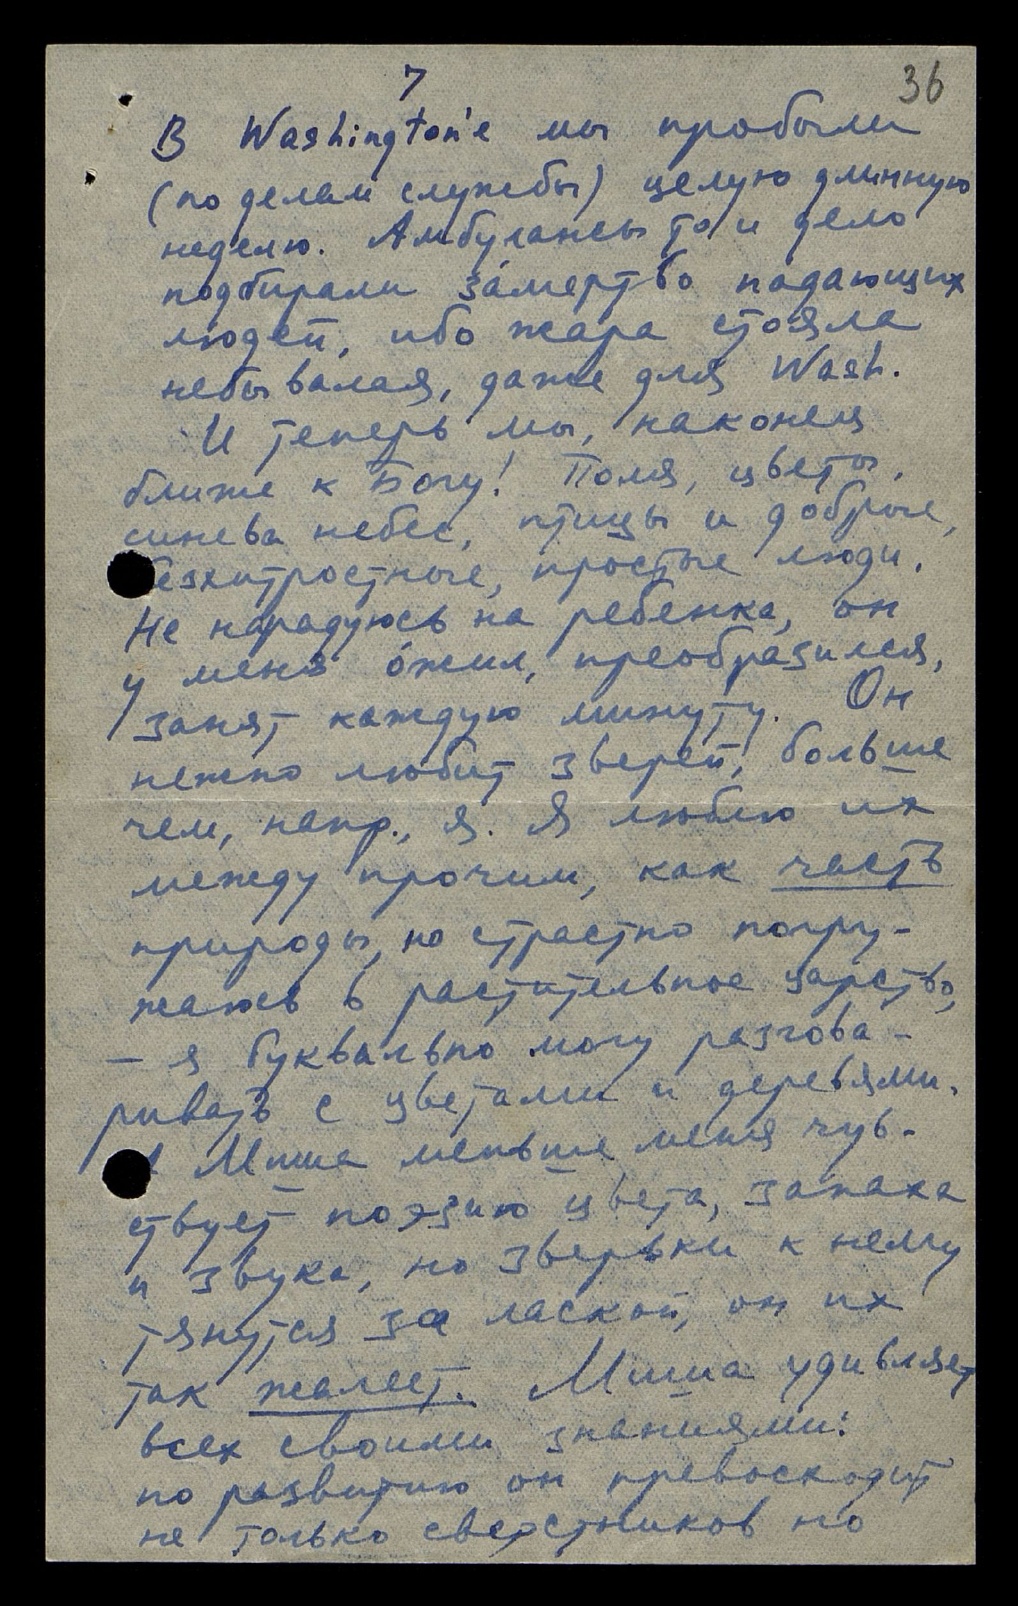 7
36
В Washington'е мы пробыли
(по делам службы) целую длинную
неделю. Амбулансы то и дело
подбирали за́мертво падающих
людей, ибо жара стояла
небывалая, даже для Wash.
И теперь мы, наконец
ближе к Богу! Поля, цветы,
синева небес, птицы и добрые,
безхитростные, простые люди.
Не нарадуюсь на ребенка, он
у меня о́жил, преобразился,
занят каждую минуту. Он
нежно любит зверей, больше
чем, напр., я. Я люблю их
между прочим, как часть
природы, но страстно погру-
жаюсь в растительное царство,
— я буквально могу разгова-
ривать с цветами и деревями.
А Миша меньше меня чув-
ствует поэзию цвета, запаха
и звука, но зверьки к нему
тянутся за лаской, он их
так жалеет. Миша удивляет
всех своими знаниями:
по развитию он превосходит
не только сверстников но